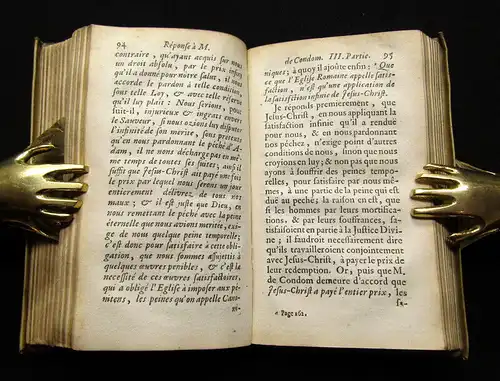 94 Réponse à M.
contraire, qu'ayant acquis sur nous
un droit absolu, par le prix infiny
qu'il a donné pour nôtre salut, il nous
accorde le pardon à telle condition,
sous telle Loy, & avec telle reserve
qu'il luy plaît: Nous serions, pour-
suit-il, injurieux & ingrats envers
le Sauveur, si nous osions luy disputer
l'infinité de son merite, sous pretexte
qu'en nous pardonnant le péché d'A-
dam, il ne nous décharge pas en mê-
me temps de toutes ses suites; aussi il
suffit que Jesus-Christ ait payé une fois
le prix par lequel nous serons un jour
entierement délivrez de tous nos
maux; & il est juste que Dieu, en
nous remettant le péché avec la peine
éternelle que nous avions meritée, exi-
ge de nous quelque peine temporelle;
c'est donc pour satisfaire à cette obli-
gation, que nous sommes assujettis à
quelques œuvres penibles, & c'est
la necessité de ces œuvres satisfactoires,
qui a obligé l'Eglise à imposer aux pe-
nitens, les peines qu'on appelle Cano-
ni-
de Condom. III. Partie. 95
niques; à quoy il ajoûte enfin: Que
ce que l'Eglise Romaine appelle satis-
faction, n'est qu'une application de
la satisfaction infinie de Jesus-Christ.
Je réponds premierement, que
Jesus-Christ, en nous appliquant la
satisfaction infinie qu'il a rendüe
pour nous, & en nous pardonnant
nos péchez, n'exige point d'autres
conditions de nous, sinon que nous
croyions en luy; & non pas que nous
ayons à souffrir des peines tempo-
relles, pour satisfaire par nous mê-
mes, à une partie de la peine qui est
due au peché; la raison en est, que
si les hommes par leurs mortifica-
tions, & par leurs souffrances, sa-
tisfaisoient en partie à la Justice Divi-
ne; il faudroit necessairement dire
qu'ils travailleroient conjointement
avec Jesus-Christ, à payer le prix de
leur redemption. Or, puis que M.
de Condom demeure d'accord que
Jesus-Christ a payé l'entier prix, les
sa-
Page 262.